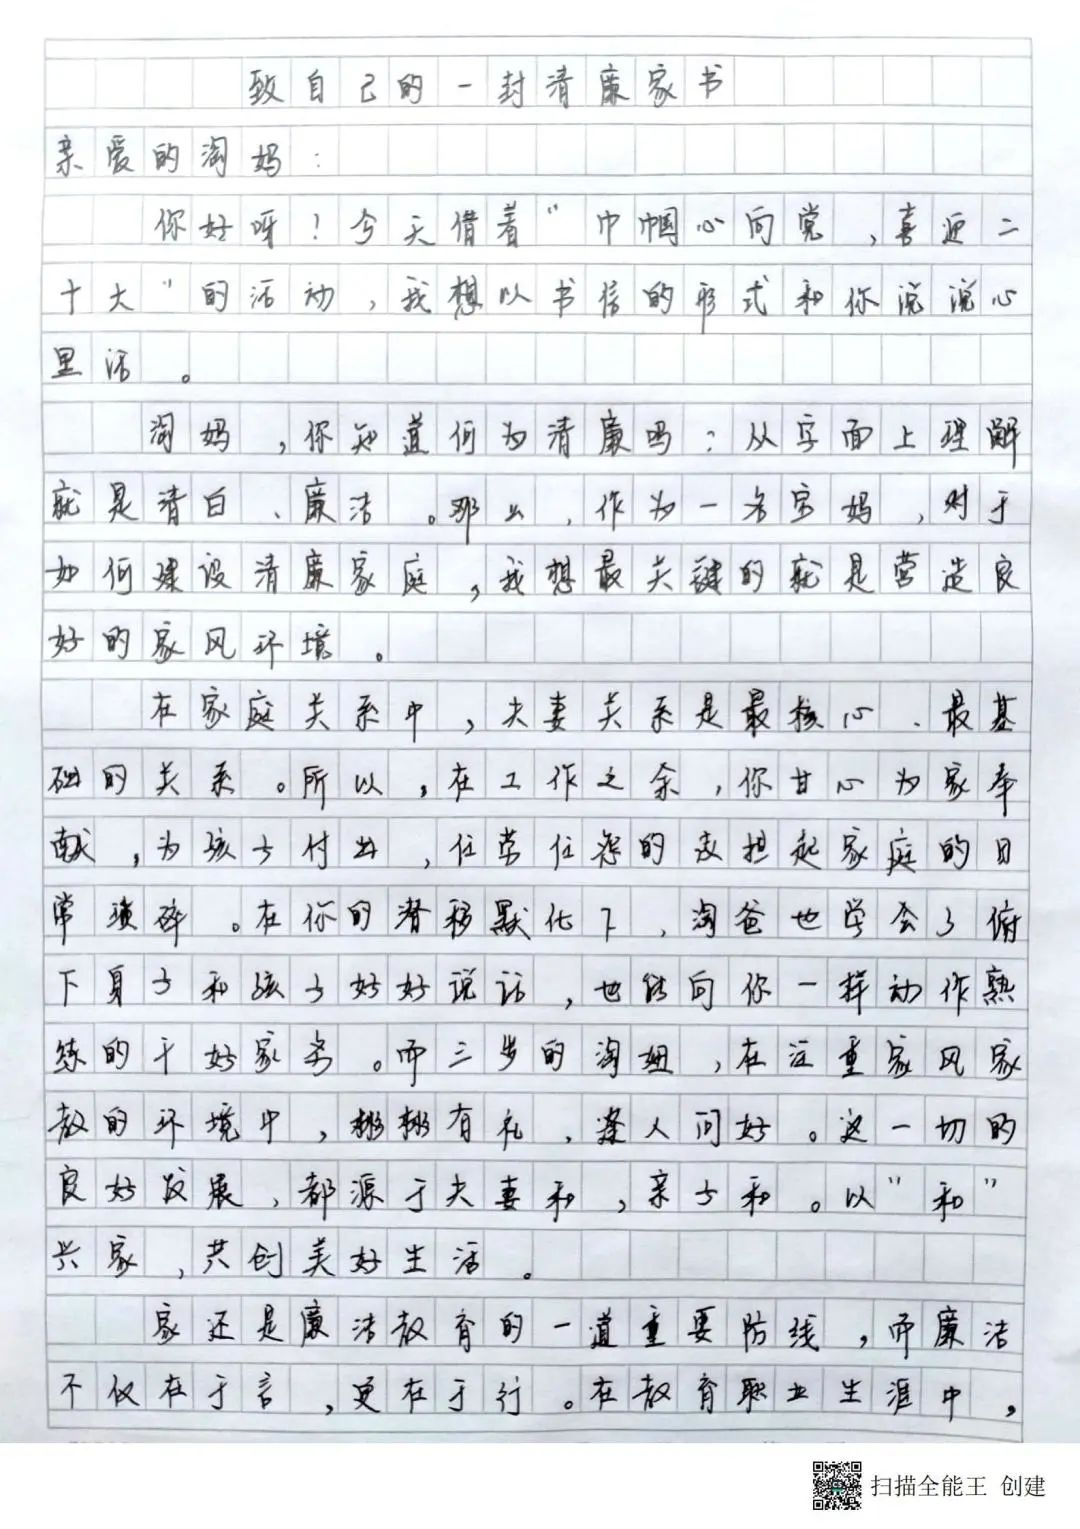 致自己的一封清廉家书
亲爱的淘妈:
你好呀!今天借着"巾帼心向党,喜迎二
十大"的活动,我想以书信的形式和你说说心
里话。
淘妈,你知道何为清廉吗?从字面上理解
就是清白、廉洁。那么,作为一名宝妈,对于
如何建设清廉家庭,我想最关键的就是营造良
好的家风环境。
在家庭关系中,夫妻关系是最核心、最基
础的关系。所以,在工作之余,你甘心为家奉
献,为孩子付出,任劳任怨的走担起家庭的日
常琐碎。在你的潜移默化下,淘爸也学会了俯
下身子和孩子好好说话,也能向你一样动作熟
练的干好家务。而三岁的淘妞,在注重家风家
教的环境中,彬彬有礼,逢人问好。这一切的
良好发展,都源于夫妻和,亲子和。以"和"
兴家,共创美好生活。
家还是廉洁教育的一道重要防线,而廉洁
不仅在于言,更在于行。在教育职业生涯中,
扫描全能王 创建